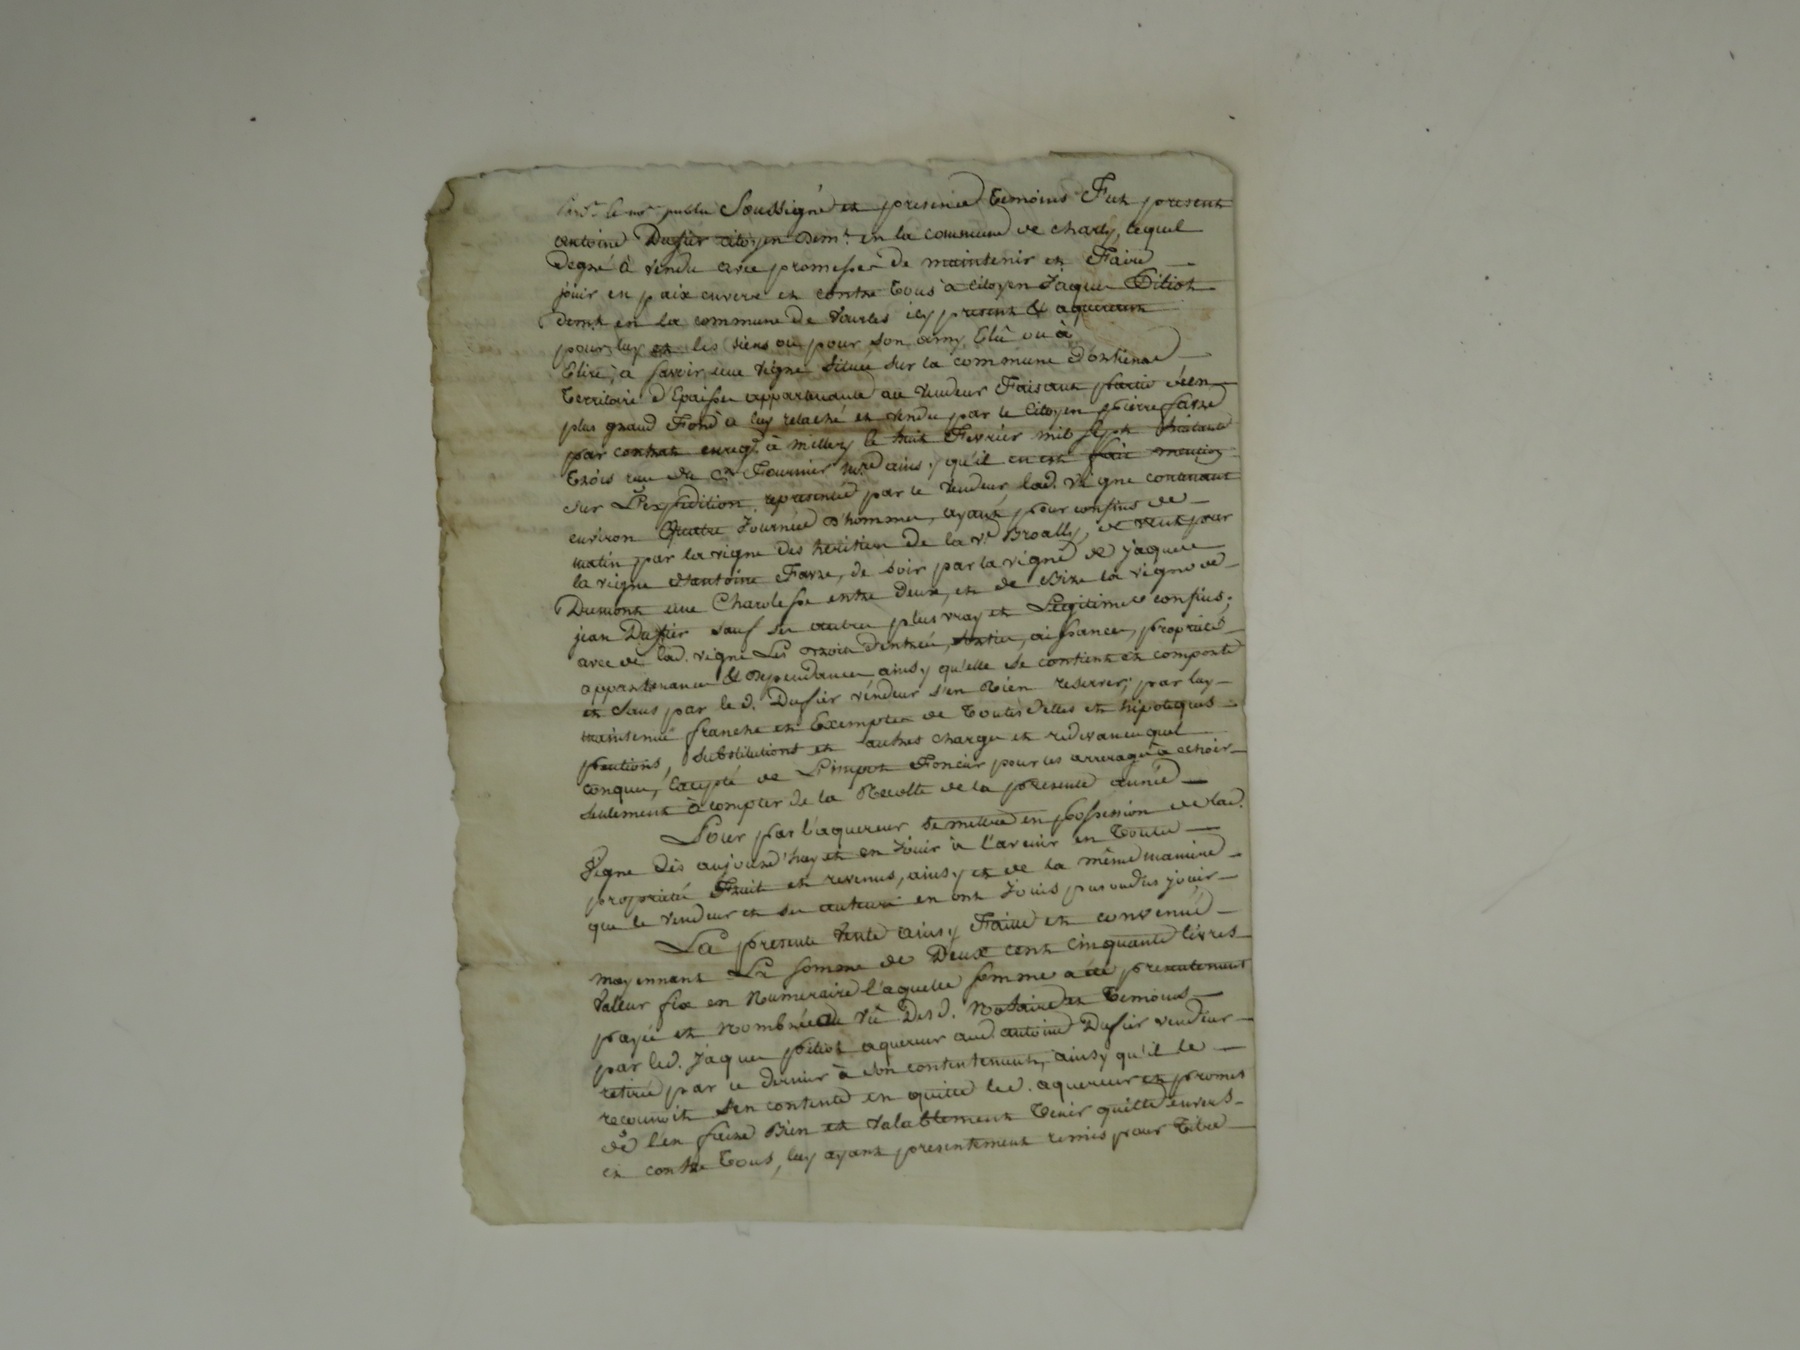 publi Soussigné et presence temoins Fut present
antoine Dussier citoyen Demt. en la commune de charly, lequel
degré à vendu avec promesse de maintenir et Faire
jouir en paix envers et contre tous a citoyen Jaque Pitiot
demt. en la commune de Vourles icy present & aquereur
pour luy et les siens ou pour son amy Elû ou à
Elire, a savoir une vigne située sur la commune d'
territoire d' appartenante au vendeur Faisant partie d'un
plus grand Fond a luy relaché et vendu par le Citoyen pierre favre
par contrat enregé. à millery le huit Fevrier mil sept
trois reçu Me. Fournier nore. ainsy qu'il en est fait mention
sur L'expedition representée par le vendeur lad. vigne contenant
environ Quatre Journée d'hommes, ayant pour confins de
matin par la vigne des heritiers de la ve. Broally, de vent par
la vigne d'antoine Favre, de soir par la vigne de jaques
Dumont une Charlesse entre deux, et de Bize la vigne de
jean Dussier sauf ses autres plus vray et Legitimes confins,
avec de lad. vigne Les droits d'entrée, sortie, aisances, proprieté
appartenances & Dependances ainsy qu'elle se contient et comporte
et sans par led. Dussier vendeur s'en Rien reserver; par luy
maintenue franche et Exempte de toutes dettes et hipoteques
pentions, substitutions et autres charges et redevances quel
conques, Excepté de L'impot Foncier pour les arrerages a echoir
seulement à compter de la Recolte de la presente année
Pour par l'aquereur se mettre en possession de lad.
Vigne dès aujourd'huy et en Jouir à l'avenir en toute
proprieté Fruit et revenus, ainsy et de la même maniere
que le vendeur et ses auteurs en ont Jouis pu ou dus jouir
La presente vente ainsy Faitte et convenue
moyennant La somme de Deux cent cinquante livres
valleur fixe en Numeraire l'aquelle somme a été presentement
payée et nombrée au vû Desd. Notaire et temoins
par led. Jaque pitiot aquereur aud. antoine Dussier vendeur
retirée par ce dernier à son contentement, ainsy qu'il le
reconnoit s'en contente en quitte led. aquereur et promet
de l'en faire Bien et valablement tenir quitte envers
et contre tous, luy ayant presentement remis pour titre